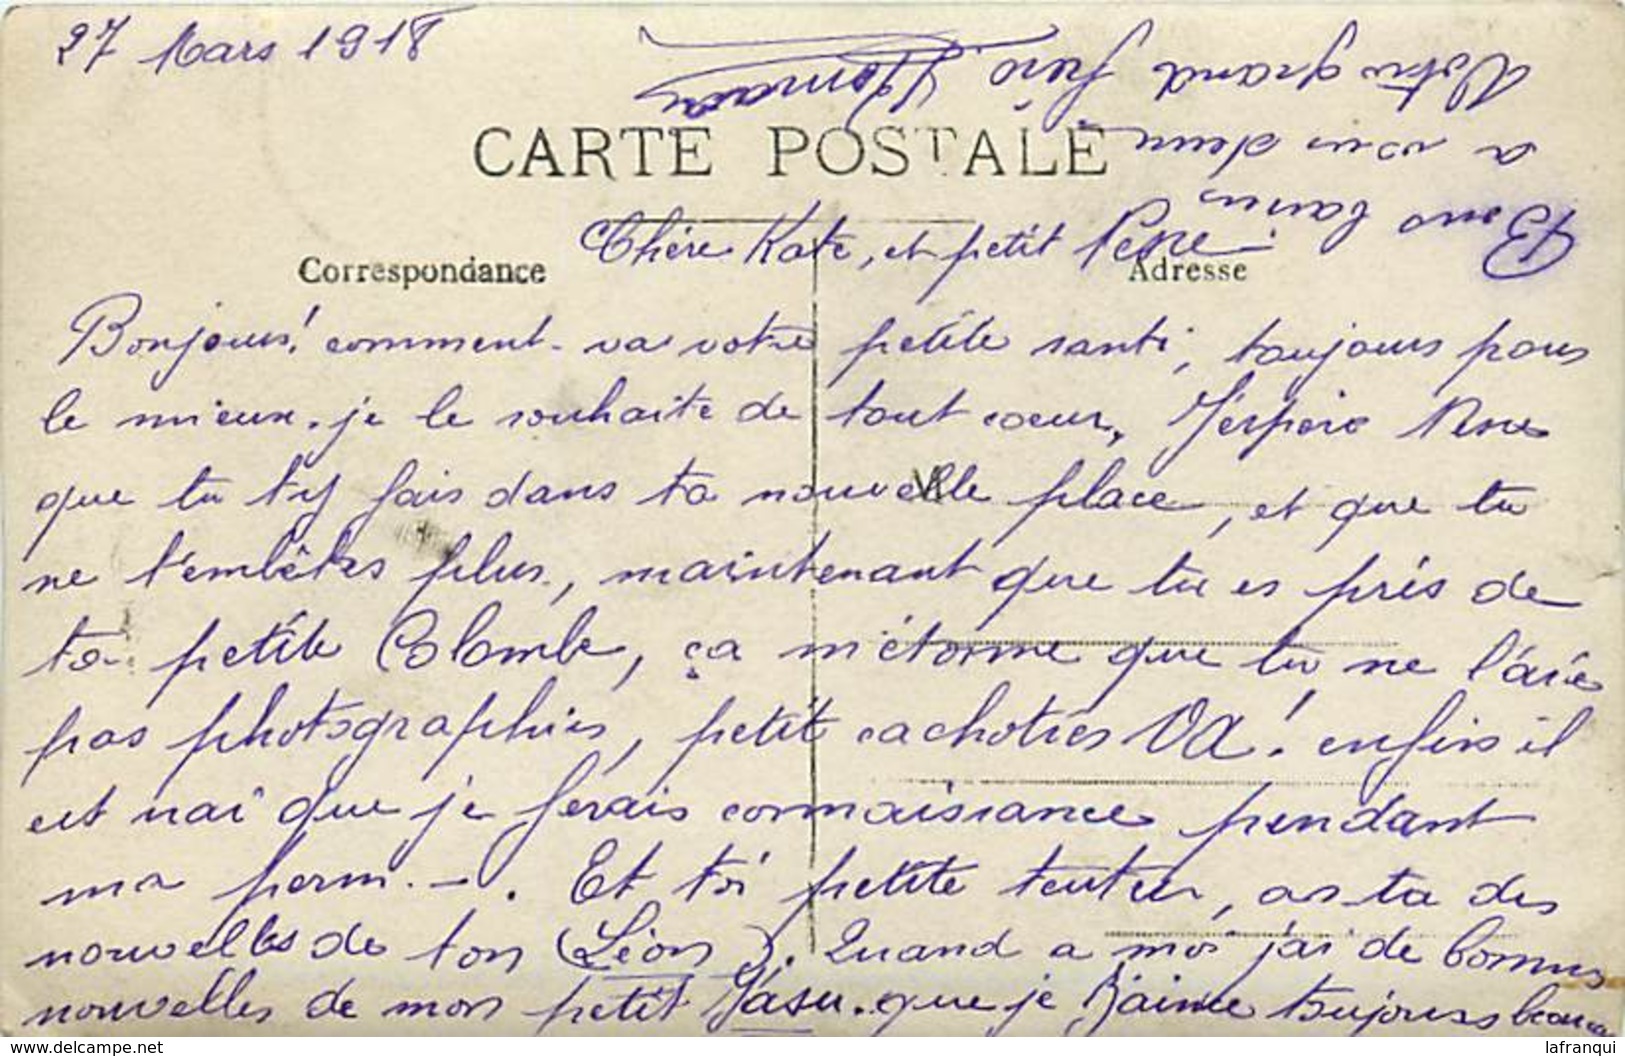 27 Mars 1918
CARTE POSTALE
Correspondance
Adresse
Chère Kate, et petit Pesne
Bonjour! comment va votre petite santé, toujours pour
le mieux. je le souhaite de tout coeur, J'espère Pesne
que tu t'y fais dans ta nouvelle place, et que tu
ne t'embêtes plus, maintenant que tu es près de
ta petite Colombe, ça m'étonne que tu ne l'aies
pas photographiés, petit cachotiés VA! enfin il
est vrai que je ferais connaissance pendant
ma perm. -. Et toi petite, as-tu des
nouvelles de ton (Léon). Quand a moi j'ai de bonnes
nouvelles de mon petit que je toujours
Bons baisers
a vous deux
Votre grand frère
lafranqui